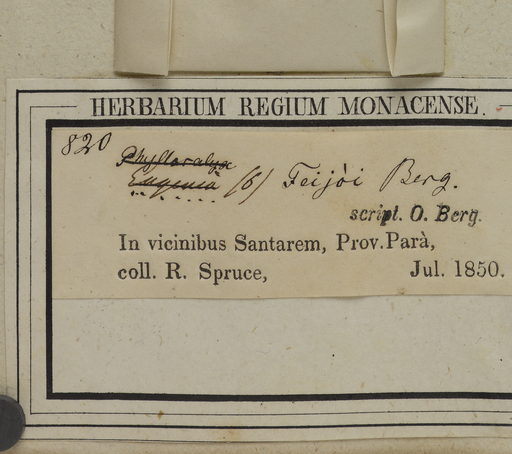 HERBARIUM REGIUM MONACENSE.
820
Phyllocalyx
Eugenia (6) Feijòi Berg.
script. O. Berg.
In vicinibus Santarem, Prov. Parà,
coll. R. Spruce, Jul. 1850.